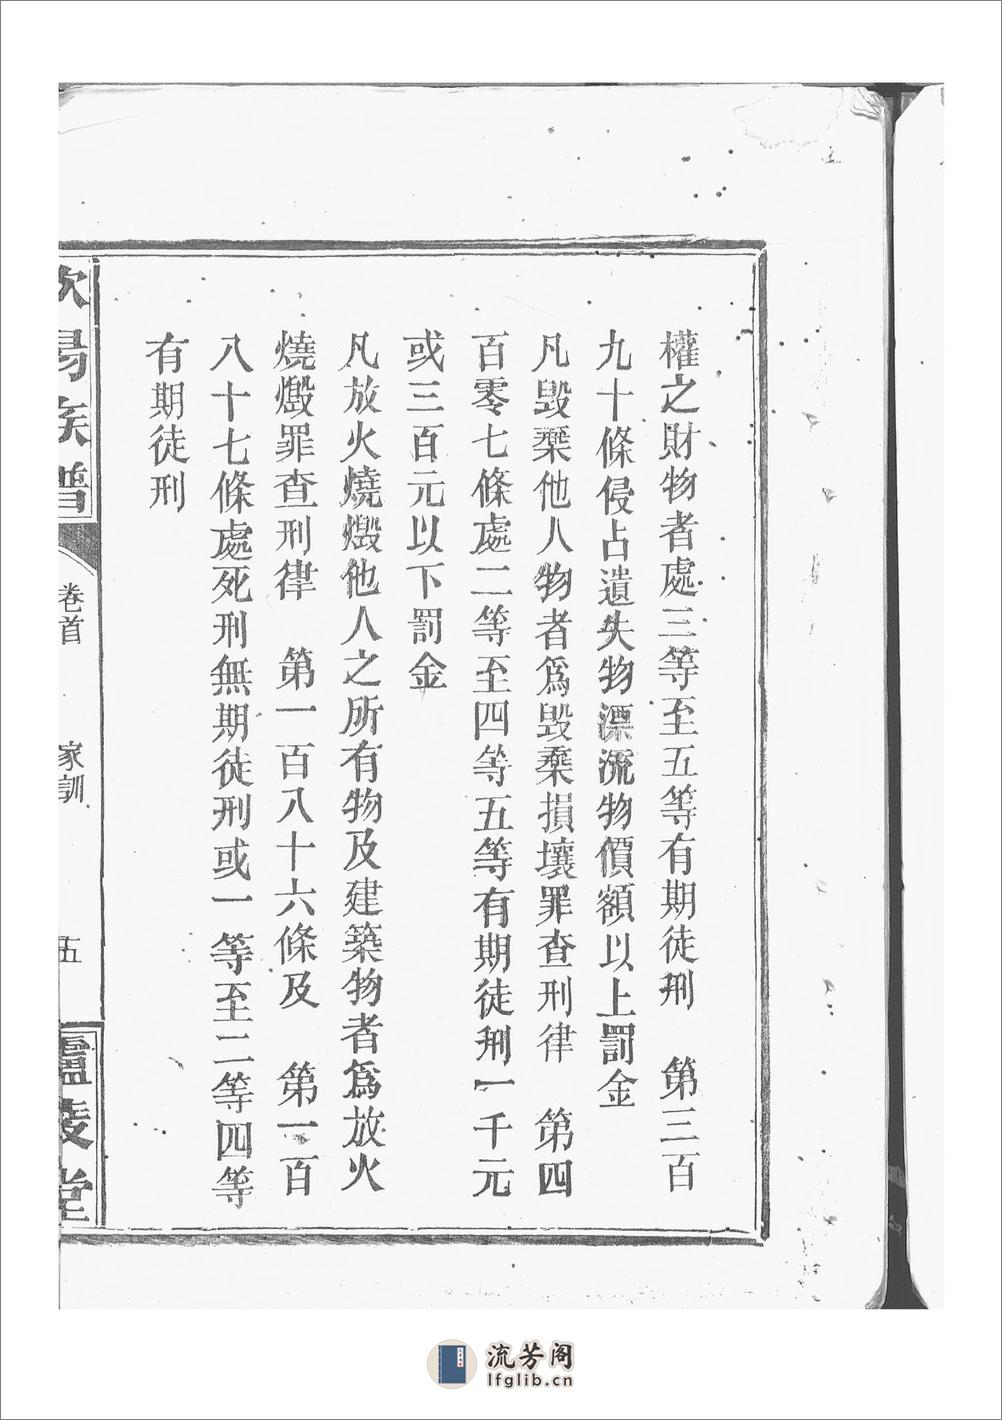 權之財物者處三等至五等有期徒刑　第三百
九十條侵占遺失物漂流物價額以上罰金
凡毀棄他人物者爲毀棄損壞罪查刑律　第四
百零七條處二等至四等五等有期徒刑一千元
或三百元以下罰金
凡放火燒燬他人之所有物及建築物者爲放火
燒燬罪查刑律　第一百八十六條及　第一百
八十七條處死刑無期徒刑或一等至二等四等
有期徒刑
陽族譜
卷首　家訓　五
廬陵堂
流芳阁
lfglib.cn